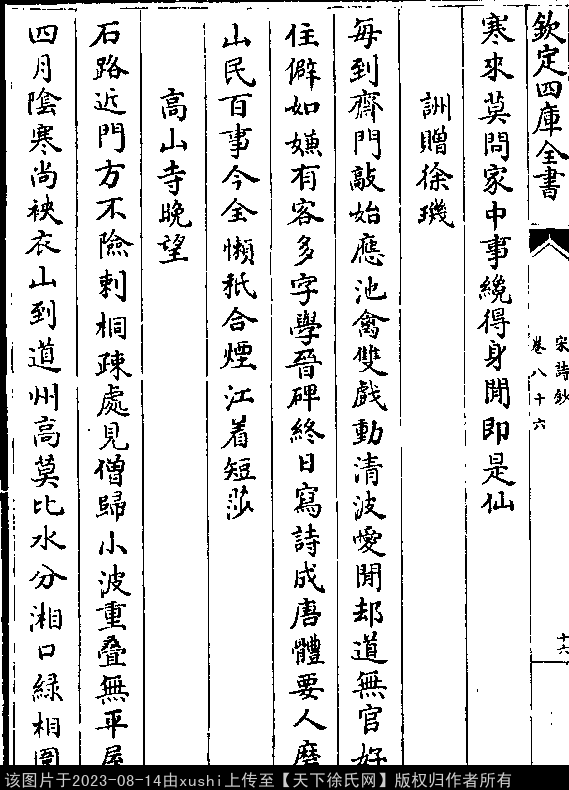 欽定四庫全書
宋詩鈔
卷八十六
十六
寒來莫問家中事纔得身閒即是仙
詶贈徐璣
每到齋門敲始應池禽雙戲動清波愛閒却道無官好
住僻如嫌有客多字學晉碑終日寫詩成唐體要人磨
山民百事今全懶秖合煙江着短莎
高山寺晚望
石路近門方不險刺桐疎處見僧歸小波重疊無平屋
四月陰寒尚裌衣山到道州高莫比水分湘口緑相圍
该图片于2023-08-14由xushi上传至【天下徐氏网】版权归作者所有